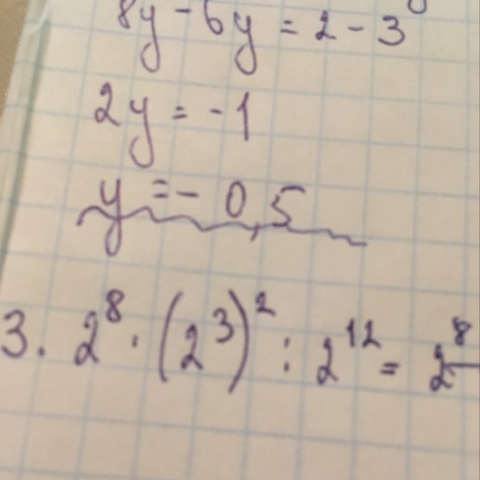 8y - 6y = 2 - 3
2y = -1
y = - 0,5
3. 2⁸ · (2³)² : 2¹² = 2⁸